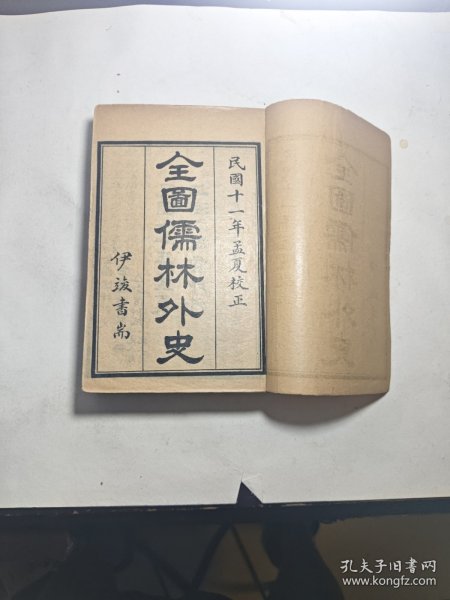 民國十一年孟夏校正
全圖儒林外史
伊遂書耑
孔夫子旧书网
www.kongfz.com